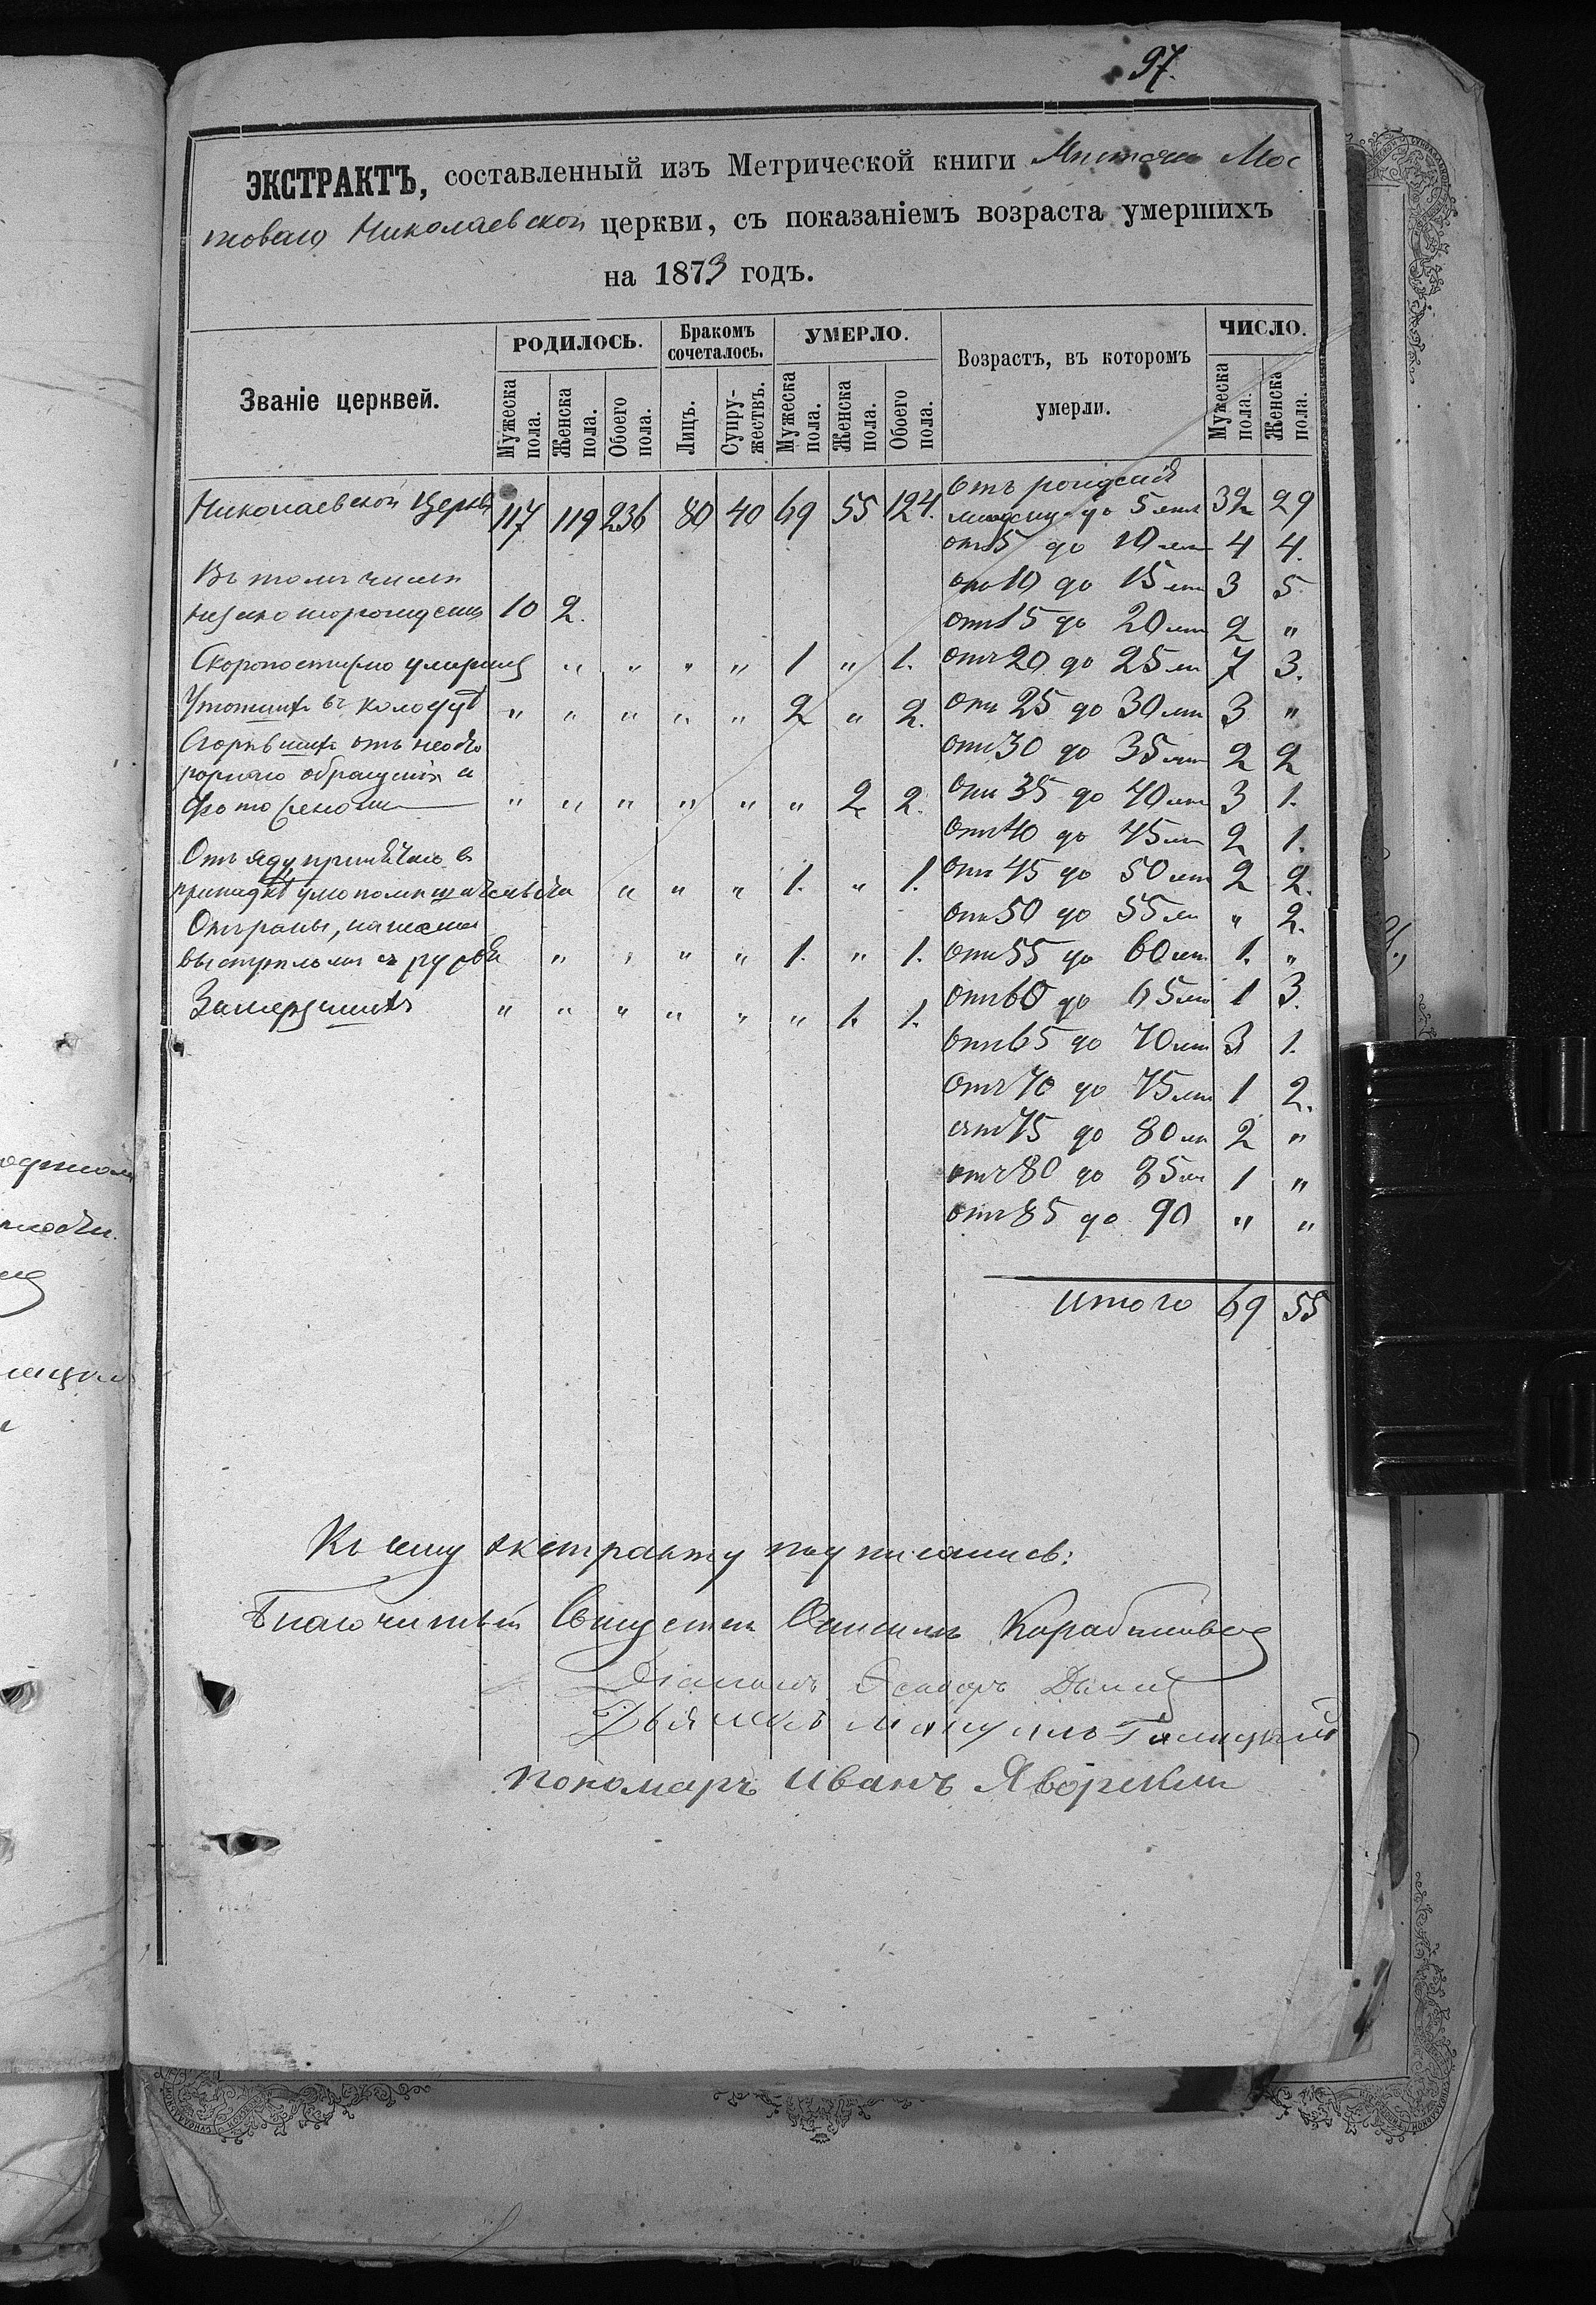 97.
ЭКСТРАКТЪ, составленный изъ Метрической книги Мѣстечка Мос
товаго Николаевской церкви, съ показаніемъ возраста умершихъ
на 1873 годъ.
Званіе церквей.
РОДИЛОСЬ.
Мужеска пола.
Женска пола.
Обоего пола.
Бракомъ сочеталось.
Лицъ.
Супружествъ.
УМЕРЛО.
Мужеска пола.
Женска пола.
Обоего пола.
Возрастъ, въ которомъ умерли.
ЧИСЛО.
Мужеска пола.
Женска пола.
Николаевской Церкви 117 119 236 80 40 69 55 124.
Въ томъ числѣ
незаконорожденныхъ 10 2.
Скоропостижно умершихъ " " " " 1 " 1.
Утопшихъ въ колодезѣ " " " " " 2 " 2.
Сгорѣвшихъ отъ неосто
рожнаго обращенія съ
фотогеномъ " " " " " " 2 2.
Отъ яду принятаго въ
припадкѣ умопомѣшательства " " " 1. " 1.
Отъ раны, нанесенной
выстрѣломъ съ ружья " " " " 1. " 1.
Замерзшихъ " " " " " " 1. 1.
отъ рожденія
до 5 лѣтъ 32 29
отъ 5 до 10 лѣтъ 4 4.
отъ 10 до 15 лѣтъ 3 5
отъ 15 до 20 лѣтъ 2 "
отъ 20 до 25 лѣтъ 7 3.
отъ 25 до 30 лѣтъ 3 "
отъ 30 до 35 лѣтъ 2 2
отъ 35 до 40 лѣтъ 3 1.
отъ 40 до 45 лѣтъ 2 1.
отъ 45 до 50 лѣтъ 2 2.
отъ 50 до 55 лѣтъ " 2.
отъ 55 до 60 лѣтъ 1. "
отъ 60 до 65 лѣтъ 1 3.
отъ 65 до 70 лѣтъ 3 1.
отъ 70 до 75 лѣтъ 1 2.
отъ 75 до 80 лѣтъ 2 "
отъ 80 до 85 лѣтъ 1 "
отъ 85 до 90 " "
Итого 69 55
Къ сему экстракту подписались:
Благочинный Священникъ Корабиневъ
Діаконъ
Дьячекъ Мануилъ Галицкій
пономарь Иванъ Яворскій